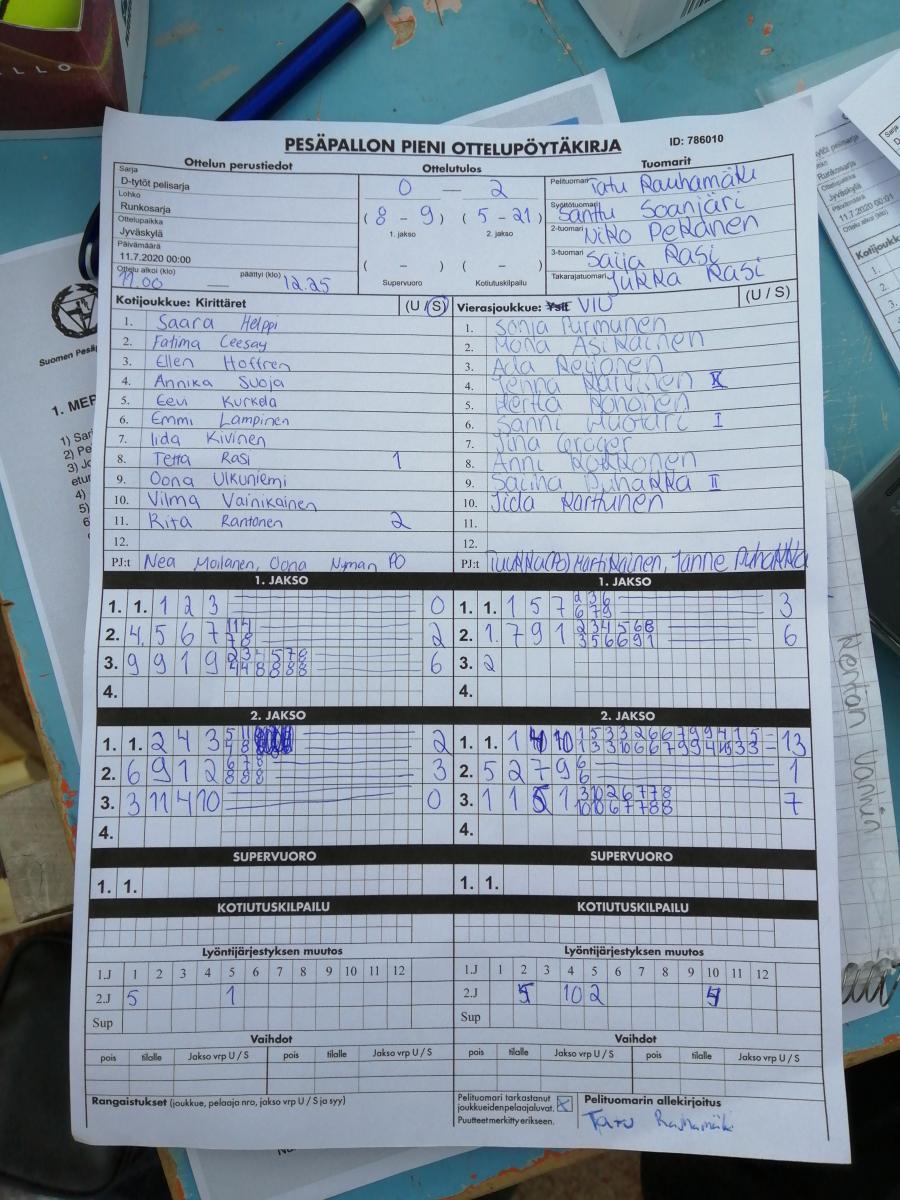 LLO
PESÄPALLON PIENI OTTELUPÖYTÄKIRJA
ID: 786010
Ottelun perustiedot
Sarja
D-tytöt pelisarja
Lohko
Runkosarja
Ottelupaikka
Jyväskylä
Päivämäärä
11.7.2020 00:00
Ottelu alkoi (klo) päättyi (klo)
11.00 — 12.25
Ottelutulos
0 — 2
( 8 - 9 ) ( 5 - 21 )
1. jakso 2. jakso
( - ) ( - )
Supervuoro Kotiutuskilpailu
Tuomarit
Pelituomari Tatu Rauhamäki
Syöttötuomari Santtu Soanjäri
2-tuomari Niko Pekänen
3-tuomari Saija Rasi
Takarajatuomari Jukka Rasi
Kotijoukkue: Kirittäret (U / S)
1. Saara Helppi
2. Fatima Ceesay
3. Ellen Hoffren
4. Annika Suoja
5. Eevi Kurkela
6. Emmi Lampinen
7. Iida Kivinen
8. Tetta Rasi 1
9. Oona Ulkuniemi
10. Vilma Vainikainen
11. Rita Rantonen 2
12.
PJ:t Nea Moilanen, Oona Nyman PO
Vierasjoukkue: Ysit VIU (U / S)
1. Sonja Purmunen
2. Mona Asikainen
3. Ada Reijonen
4. Jenna Karvinen X
5. Hertta Kononen
6. Sanni Huotari I
7. Nina Gröger
8. Anni Kokkonen
9. Salina Puhakka II
10. Iida Karttunen
11.
12.
PJ:t Tuukka(PO) Martikainen, Janne Puhakka
1. JAKSO
1. 1. 1 2 3 0
2. 4. 5 6 7 2
3. 9 9 1 9 6
4.
1. JAKSO
1. 1. 1 5 7 3
2. 1. 7 9 1 6
3. 2
4.
2. JAKSO
1. 1. 2 4 3 2
2. 6 9 1 2 3
3. 3 11 4 10 0
4.
2. JAKSO
1. 1. 1 10 13
2. 5 2 7 9 1
3. 1 1 5 1 7
4.
SUPERVUORO
1. 1.
SUPERVUORO
1. 1.
KOTIUTUSKILPAILU
KOTIUTUSKILPAILU
Lyöntijärjestyksen muutos
1.J 1 2 3 4 5 6 7 8 9 10 11 12
2.J 5 1
Sup
Lyöntijärjestyksen muutos
1.J 1 2 3 4 5 6 7 8 9 10 11 12
2.J 5 10 2 4
Sup
Vaihdot
pois tilalle Jakso vrp U / S pois tilalle Jakso vrp U / S
Vaihdot
pois tilalle Jakso vrp U / S pois tilalle Jakso vrp U / S
Rangaistukset (joukkue, pelaaja nro, jakso vrp U / S ja syy)
Pelituomari tarkastanut
joukkueiden pelaajaluvat.
Puutteet merkitty erikseen.
Pelituomarin allekirjoitus
Tatu Rauhamäki